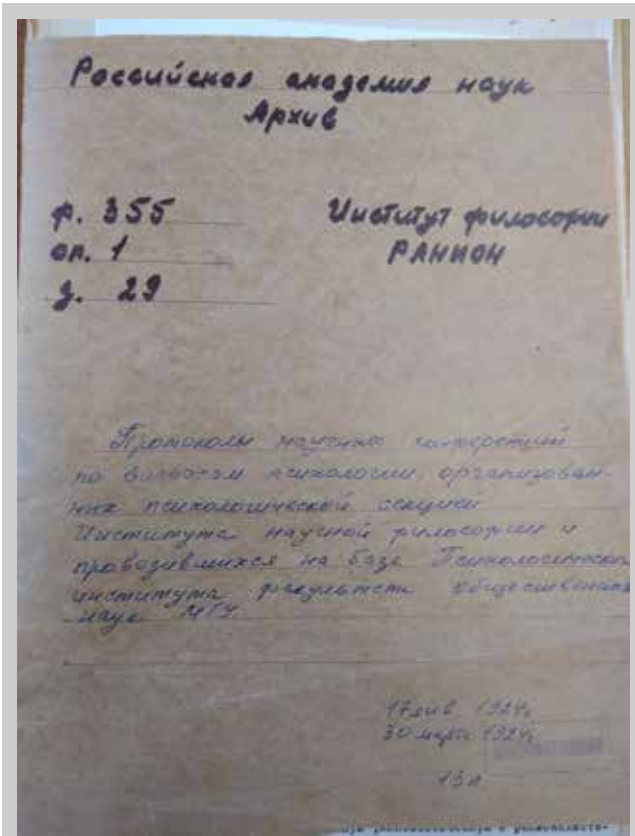 Российская академия наук
Архив
ф. 355
Институт философии
оп. 1
РАНИОН
д. 29
Протоколы научных конференций
по вопросам психологии, организован-
ных психологической секцией
Института научной философии и
проводившихся на базе Психологическ
института факультета общественных
наук МГУ.
17 янв. 1924г.
30 марта 1924г.
13 л.